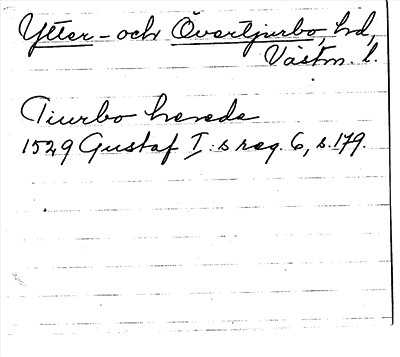 Ytter- och Övertjurbo hd,
Västm. l.
Tiurbo herede
1529 Gustaf I:s reg. 6, s. 179.